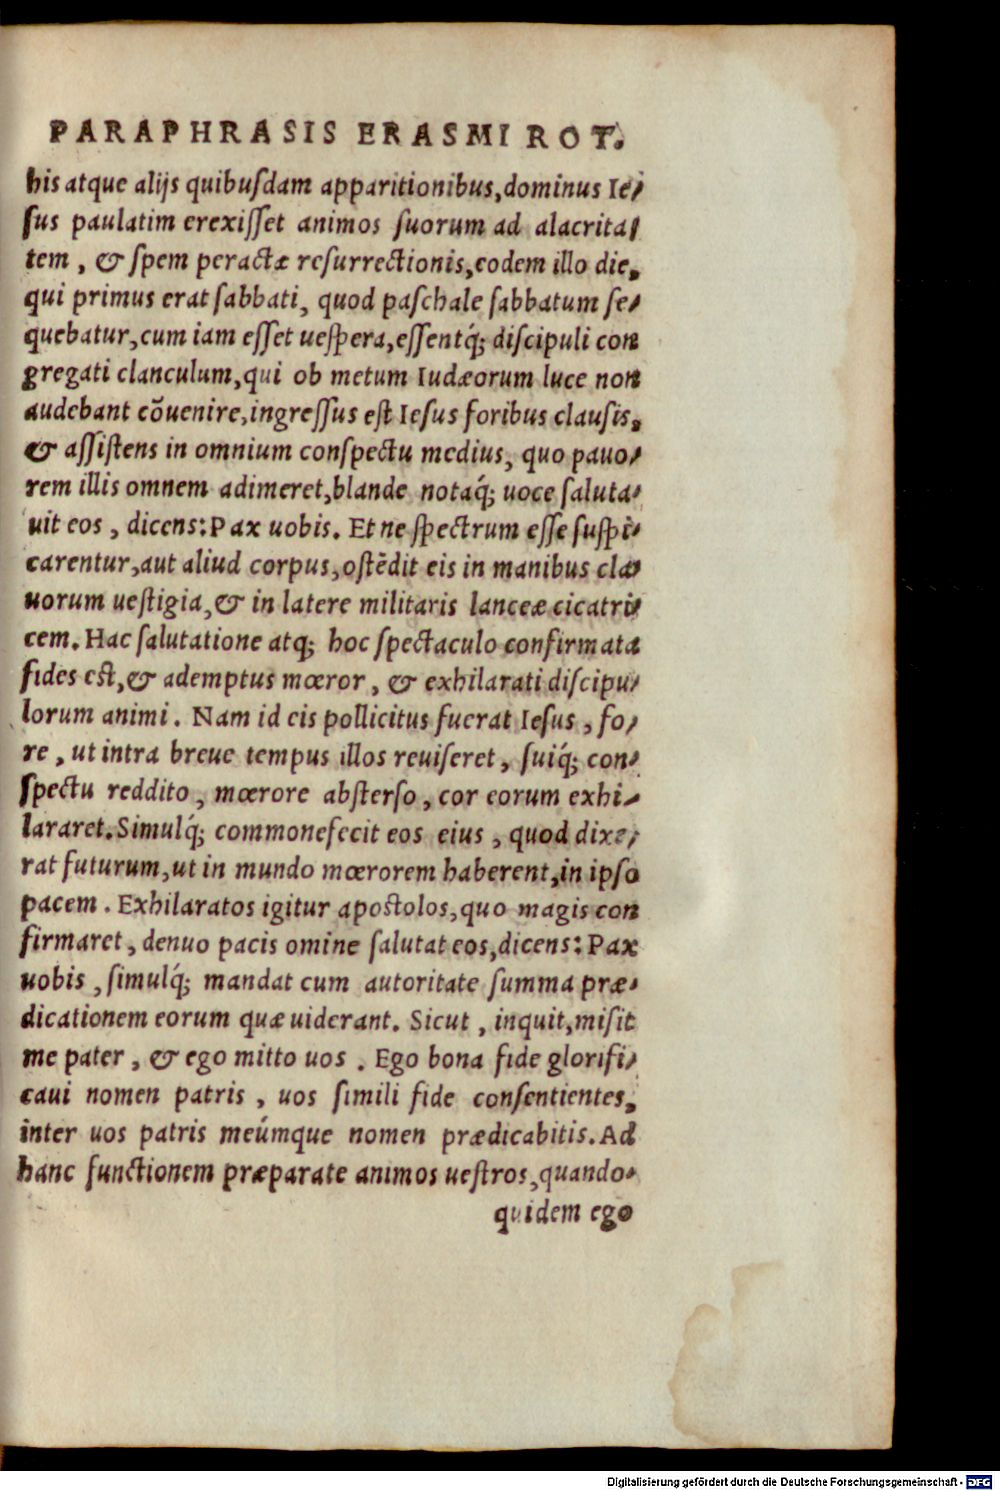 PARAPHRASIS ERASMI ROT.
his atque alijs quibusdam apparitionibus, dominus Ie-
sus paulatim erexisset animos suorum ad alacrita-
tem, & spem peractæ resurrectionis, eodem illo die,
qui primus erat sabbati, quod paschale sabbatum se-
quebatur, cum iam esset uespera, essentq́; discipuli con
gregati clanculum, qui ob metum Iudæorum luce non
audebant cōuenire, ingressus est Iesus foribus clausis,
& assistens in omnium conspectu medius, quo pauo-
rem illis omnem adimeret, blande notaq́; uoce saluta-
uit eos, dicens: Pax uobis. Et ne spectrum esse suspi-
carentur, aut aliud corpus, ostēdit eis in manibus cla-
uorum uestigia, & in latere militaris lanceæ cicatri-
cem. Hac salutatione atq; hoc spectaculo confirmata
fides est, & ademptus mœror, & exhilarati discipu-
lorum animi. Nam id eis pollicitus fuerat Iesus, fo-
re, ut intra breue tempus illos reuiseret, suiq́; con-
spectu reddito, mœrore absterso, cor eorum exhi-
lararet. Simulq́; commonefecit eos eius, quod dixe-
rat futurum, ut in mundo mœrorem haberent, in ipso
pacem. Exhilaratos igitur apostolos, quo magis con
firmaret, denuo pacis omine salutat eos, dicens: Pax
uobis, simulq́; mandat cum autoritate summa præ-
dicationem eorum quæ uiderant. Sicut, inquit, misit
me pater, & ego mitto uos. Ego bona fide glorifi-
caui nomen patris, uos simili fide consentientes,
inter uos patris meúmque nomen prædicabitis. Ad
hanc functionem præparate animos uestros, quando-
quidem ego
Digitalisierung gefördert durch die Deutsche Forschungsgemeinschaft - DFG